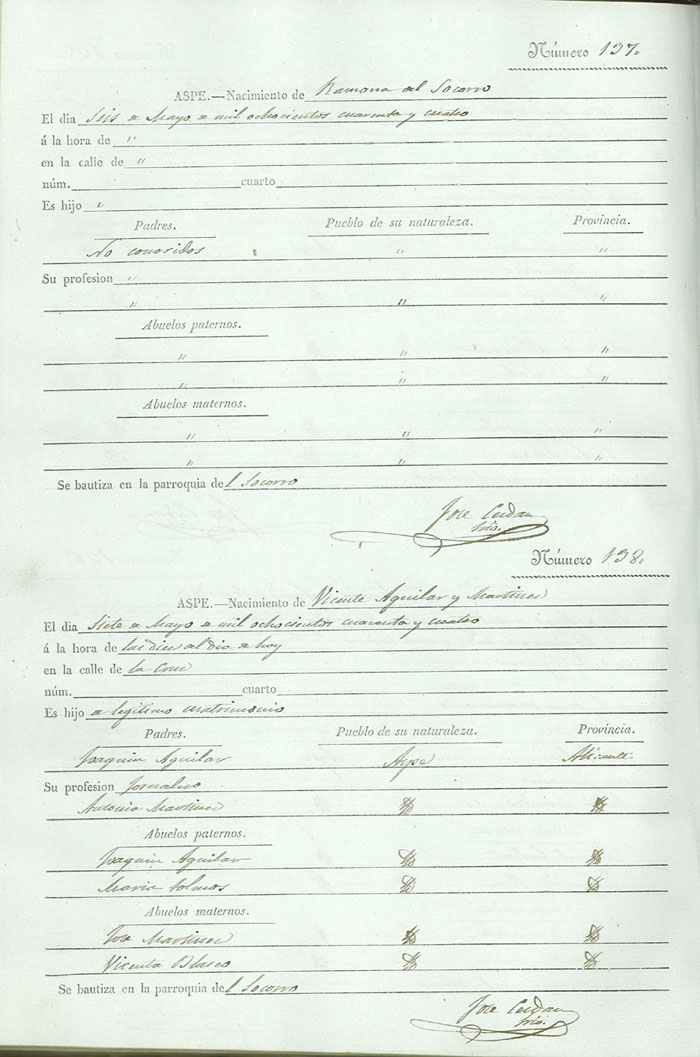 Número 137.
ASPE.—Nacimiento de Ramona del Socorro
El dia Seis de Mayo de mil ochocientos cuarenta y cuatro
á la hora de "
en la calle de "
núm. cuarto
Es hijo "
Padres. Pueblo de su naturaleza. Provincia.
No conosidos " "
Su profesion "
" " "
Abuelos paternos.
" " "
" " "
Abuelos maternos.
" " "
" " "
Se bautiza en la parroquia del Socorro
Jose Cerdan
Srio.
Número 138.
ASPE.—Nacimiento de Vicente Aguilar y Martinez
El dia Siete de Mayo de mil ochocientos cuarenta y cuatro
á la hora de las diez del dia de hoy
en la calle de la Cruz
núm. cuarto
Es hijo de legitimo matrimonio
Padres. Pueblo de su naturaleza. Provincia.
Joaquin Aguilar Aspe Alicante
Su profesion Jornalero
Antonia Martinez
Abuelos paternos.
Joaquin Aguilar
Maria
Abuelos maternos.
Jose Martinez
Vicenta Blasco
Se bautiza en la parroquia del Socorro
Jose Cerdan
Srio.